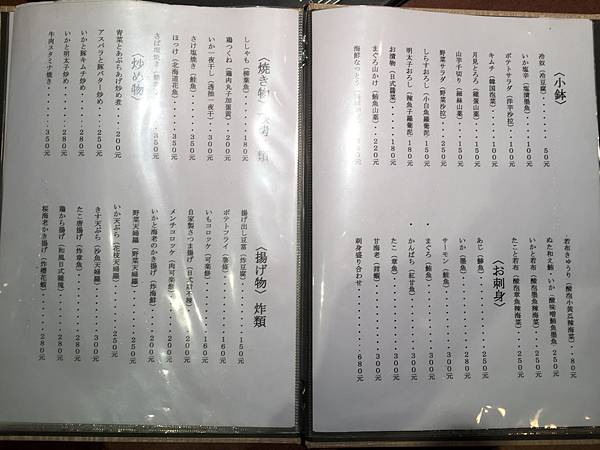 〈小鉢〉
冷奴（冷豆腐）・・・・・・・・50元
いか塩辛（塩漬墨魚）・・・100元
ポテトサラダ（洋芋沙拉）・・100元
キムチ（韓国泡菜）・・・・・100元
月見とろろ（雞蛋山薬）・・・150元
山芋千切り（細絲山薬）・・・150元
野菜サラダ（野菜沙拉）・・・250元
しらすおろし（小白魚蘿蔔泥）150元
明太子おろし（辣魚子蘿蔔泥）180元
お漬物（日式醤菜）・・・・・180元
まぐろ山かけ（鮪魚山薬）・・220元
海鮮なっとう
若布きゅうり（酸泡小黄瓜辣海菜）・80元
ぬた和え鮪・いか（酸味噌鮪魚墨魚）250元
いかと若布（酸泡墨魚辣海菜）・・250元
たこと若布（酸泡章魚辣海菜）・・250元
〈お刺身〉
あじ（鰺魚）・・・・・・・・250元
いか（墨魚）・・・・・・・・250元
サーモン（鮭魚）・・・・・・280元
まぐろ（鮪魚）・・・・・・・250元
かんぱち（紅甘魚）・・・・・350元
たこ（章魚）・・・・・・・・250元
甘海老（甜蝦）・・・・・・・350元
刺身盛り合わせ・・・・・・・680元
〈焼き物〉
ししゃも（柳葉魚）・・・・180元
鶏つくね（雞肉丸子加蛋黄）・・200元
いか一夜干し（透抽一夜干）・・300元
さけ塩焼き（鮭魚）・・・・・350元
ほっけ（北海道花魚）・・・・350元
さば塩焼き・・・350元
〈炒め物〉
青菜とあぶらあげ炒め煮・・・200元
アスパラと豚バター炒め・・・250元
いかと豚キムチ炒め・・・・・280元
いかと明太子炒め・・・・・・280元
牛肉スタミナ焼き・・・・・・350元
〈揚げ物〉炸類
揚げ出し豆富（炸豆腐）・・・150元
ポテトフライ（薯條）・・・・160元
いもコロッケ（可楽餅）・・・160元
自家製さつま揚げ（日式甜不辣）・200元
メンチコロッケ（肉可楽餅）・・200元
いかと海老のかき揚げ（炸海鮮）・250元
野菜天ぷら（野菜天婦羅）・・・250元
いか天ぷら（花枝天婦羅）・・・250元
きす天ぷら（沙魚天婦羅）・・・300元
たこ唐揚げ（炸章魚）・・・・・280元
鶏から揚げ（和風日式雞塊）・・280元
桜海老かき揚げ（炸櫻花蝦）・・280元